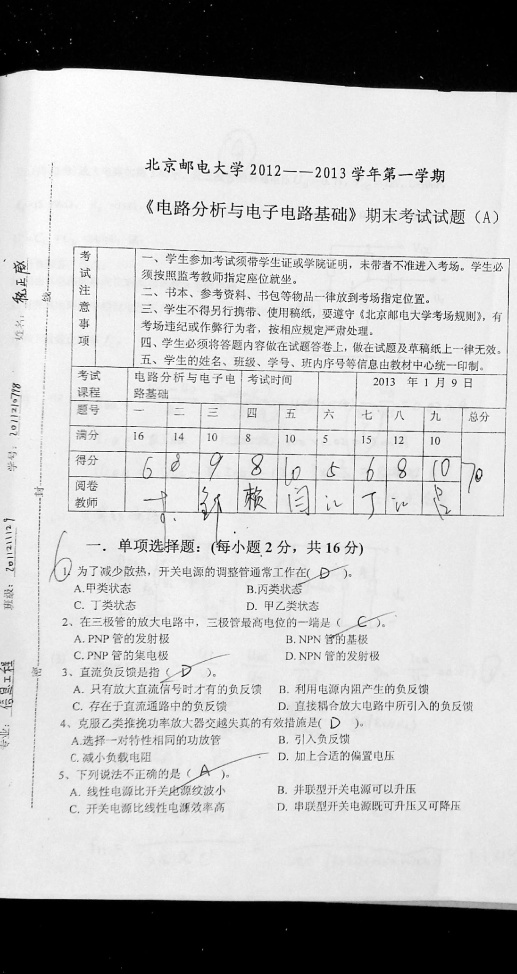 北京邮电大学 2012——2013 学年第一学期
《电路分析与电子电路基础》期末考试试题（A）
考试注意事项
一、学生参加考试须带学生证或学院证明，未带者不准进入考场。学生必
须按照监考教师指定座位就坐。
二、书本、参考资料、书包等物品一律放到考场指定位置。
三、学生不得另行携带、使用稿纸，要遵守《北京邮电大学考场规则》，有
考场违纪或作弊行为者，按相应规定严肃处理。
四、学生必须将答题内容做在试题答卷上，做在试题及草稿纸上一律无效。
五、学生的姓名、班级、学号、班内序号等信息由教材中心统一印制。
考试课程 电路分析与电子电路基础 考试时间 2013 年 1 月 9 日
题号 一 二 三 四 五 六 七 八 九 总分
满分 16 14 10 8 10 5 15 12 10
得分 6 8 9 8 10 5 6 8 10 70
阅卷教师
一．单项选择题：(每小题 2 分，共 16 分)
6
1、为了减少散热，开关电源的调整管通常工作在( D )。
A.甲类状态 B.丙类状态
C. 丁类状态 D. 甲乙类状态
2、在三极管的放大电路中，三极管最高电位的一端是（ C ）。
A. PNP 管的发射极 B. NPN 管的基极
C. PNP 管的集电极 D. NPN 管的发射极
3、直流负反馈是指（ D ）。
A. 只有放大直流信号时才有的负反馈 B. 利用电源内阻产生的负反馈
C. 存在于直流通路中的负反馈 D. 直接耦合放大电路中所引入的负反馈
4、克服乙类推挽功率放大器交越失真的有效措施是( D )。
A.选择一对特性相同的功放管 B. 引入负反馈
C. 减小负载电阻 D. 加上合适的偏置电压
5、下列说法不正确的是（ A ）。
A. 线性电源比开关电源纹波小 B. 并联型开关电源可以升压
C. 开关电源比线性电源效率高 D. 串联型开关电源既可升压又可降压
专业： 信息工程 班级： 2011211127 学号： 姓名：
密 封 线